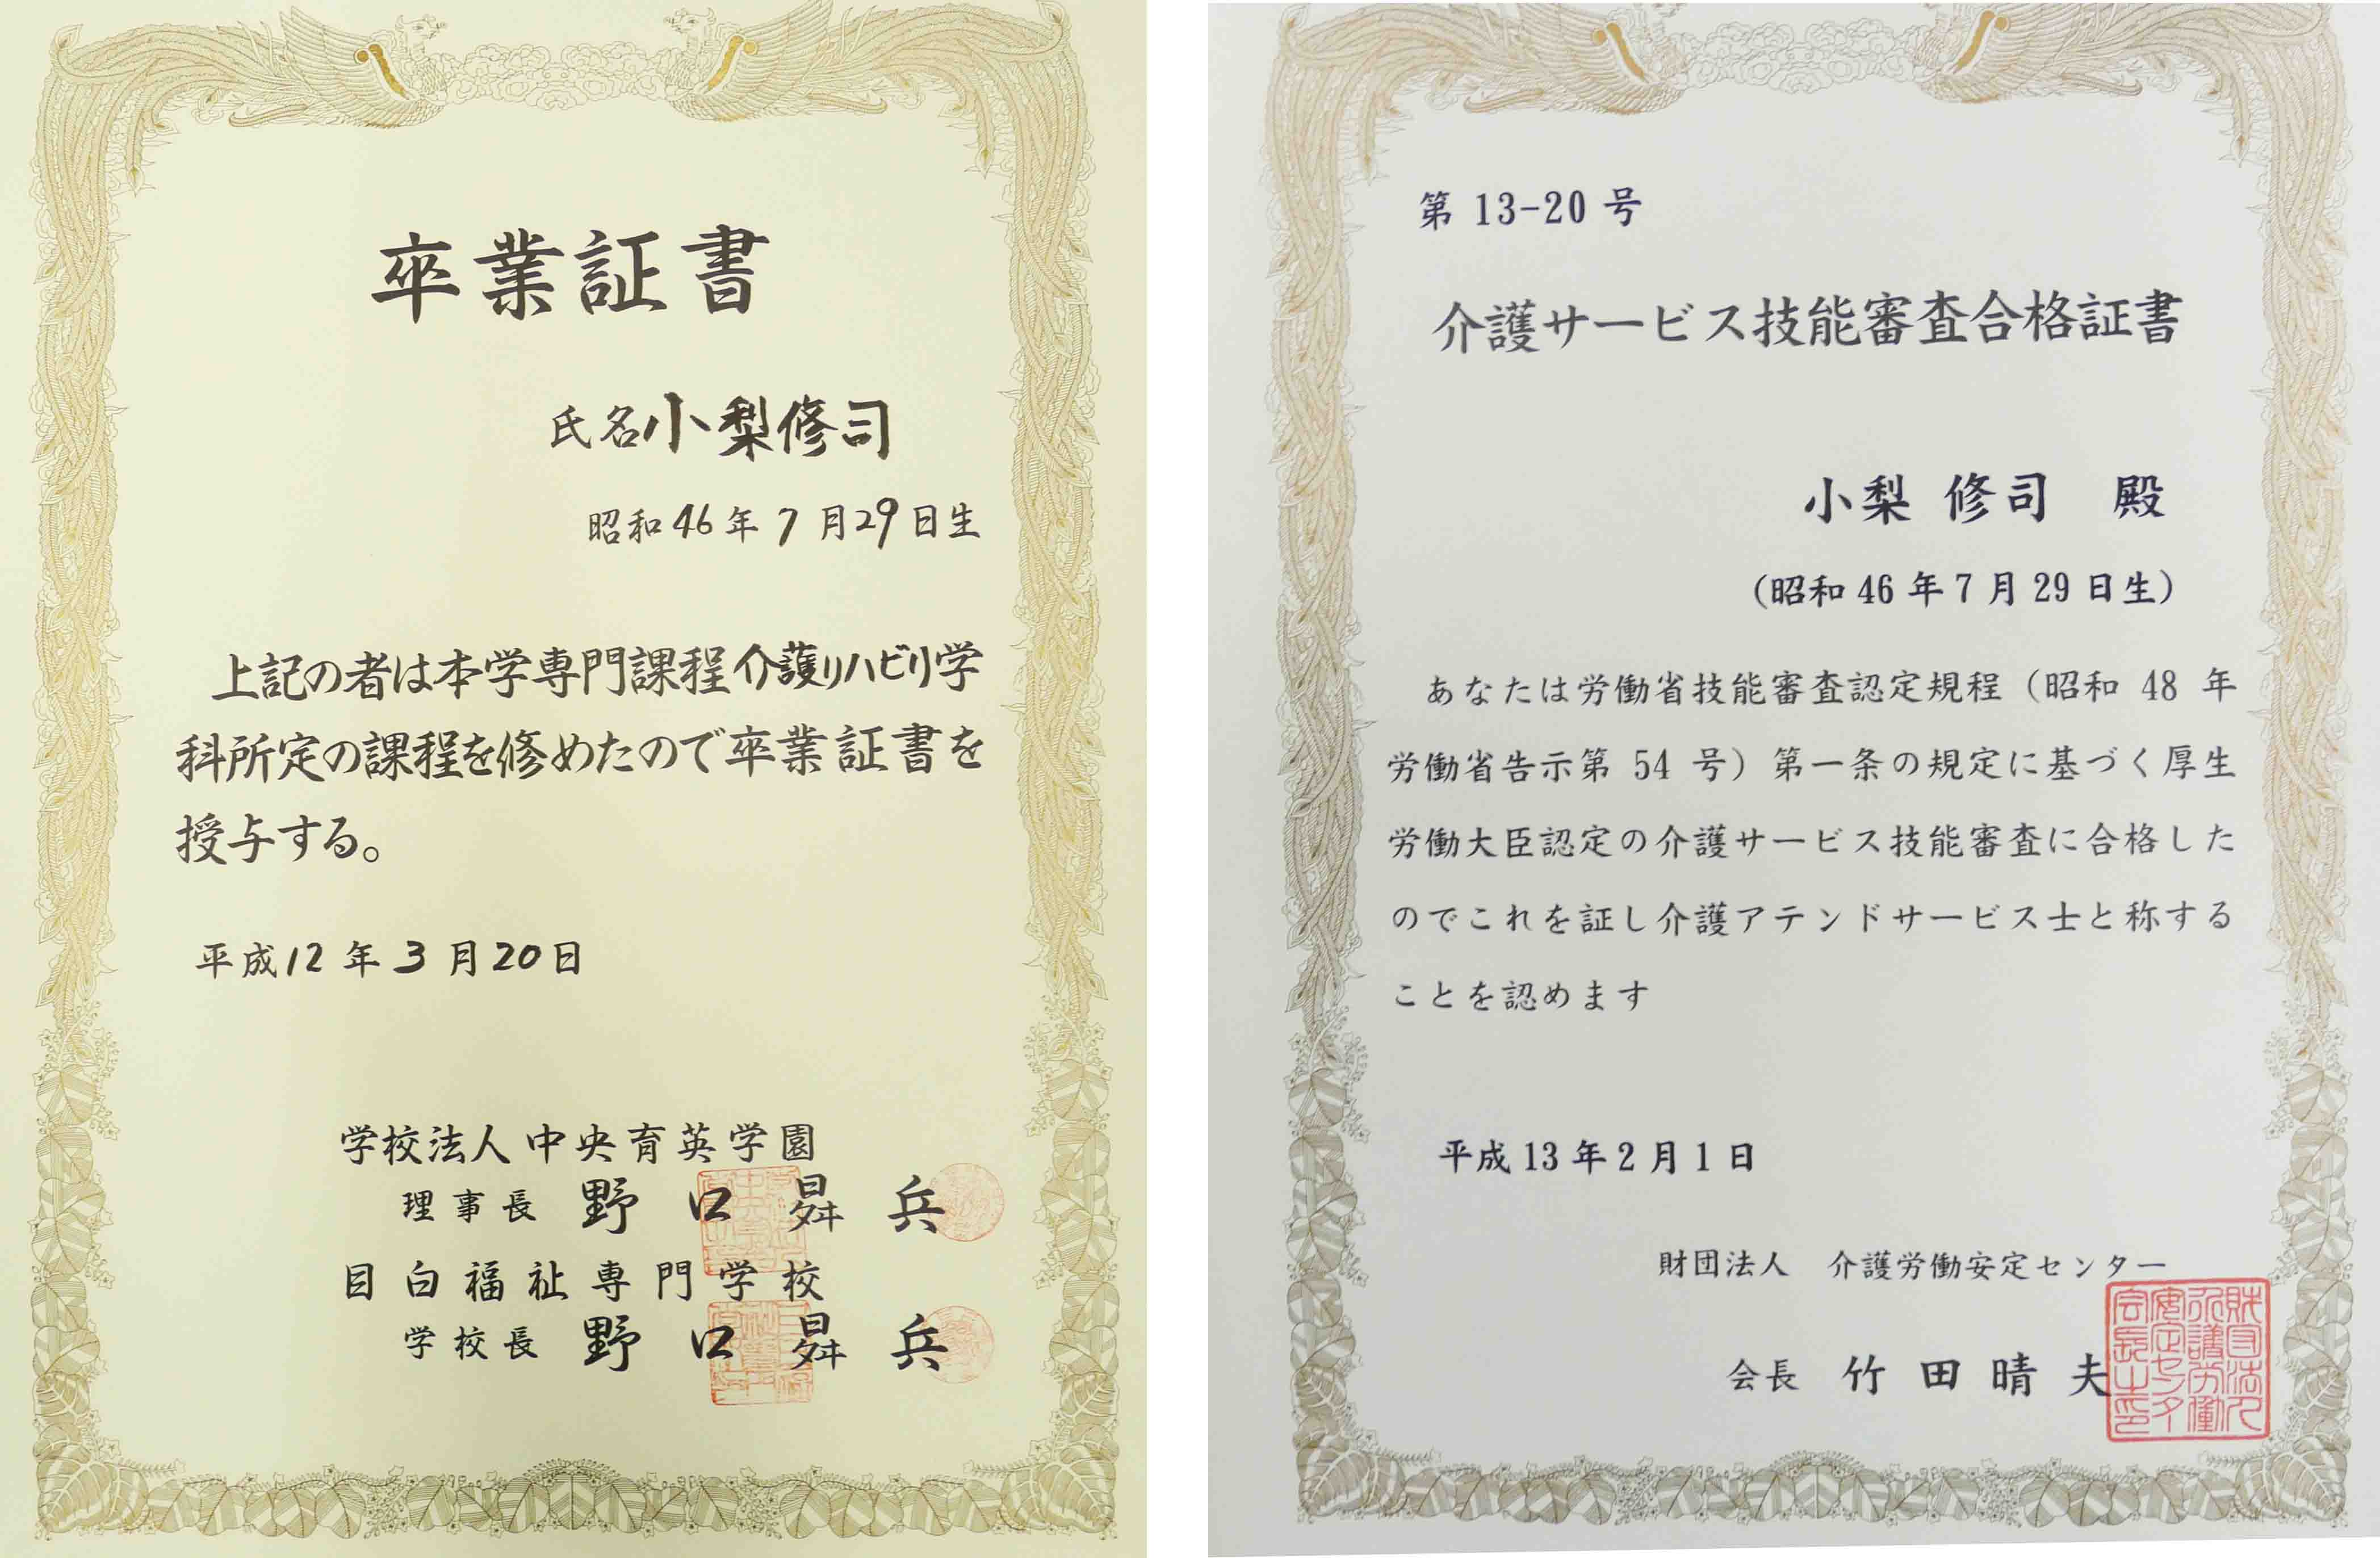 卒業証書
氏名小梨修司
昭和46年7月29日生
上記の者は本学専門課程介護リハビリ学
科所定の課程を修めたので卒業証書を
授与する。
平成12年3月20日
学校法人中央育英学園
理事長 野口曻兵
目白福祉専門学校
学校長 野口曻兵
第 13-20 号
介護サービス技能審査合格証書
小梨 修司 殿
(昭和46年7月29日生)
あなたは労働省技能審査認定規程(昭和 48 年
労働省告示第 54 号)第一条の規定に基づく厚生
労働大臣認定の介護サービス技能審査に合格した
のでこれを証し介護アテンドサービス士と称する
ことを認めます
平成13年2月1日
財団法人 介護労働安定センター
会長 竹田晴夫
財団法人
介護労働
安定センター
会長之印